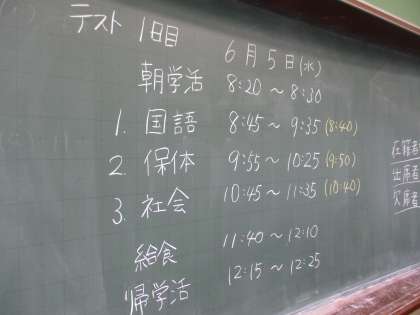 テスト 1日目
6月5日(水)
朝学活 8:20〜8:30
1. 国語 8:45〜9:35 (8:40)
2. 保体 9:55〜10:25 (9:50)
3. 社会 10:45〜11:35 (10:40)
給食 11:40〜12:10
帰学活 12:15〜12:25
在籍者
出席者
欠席者